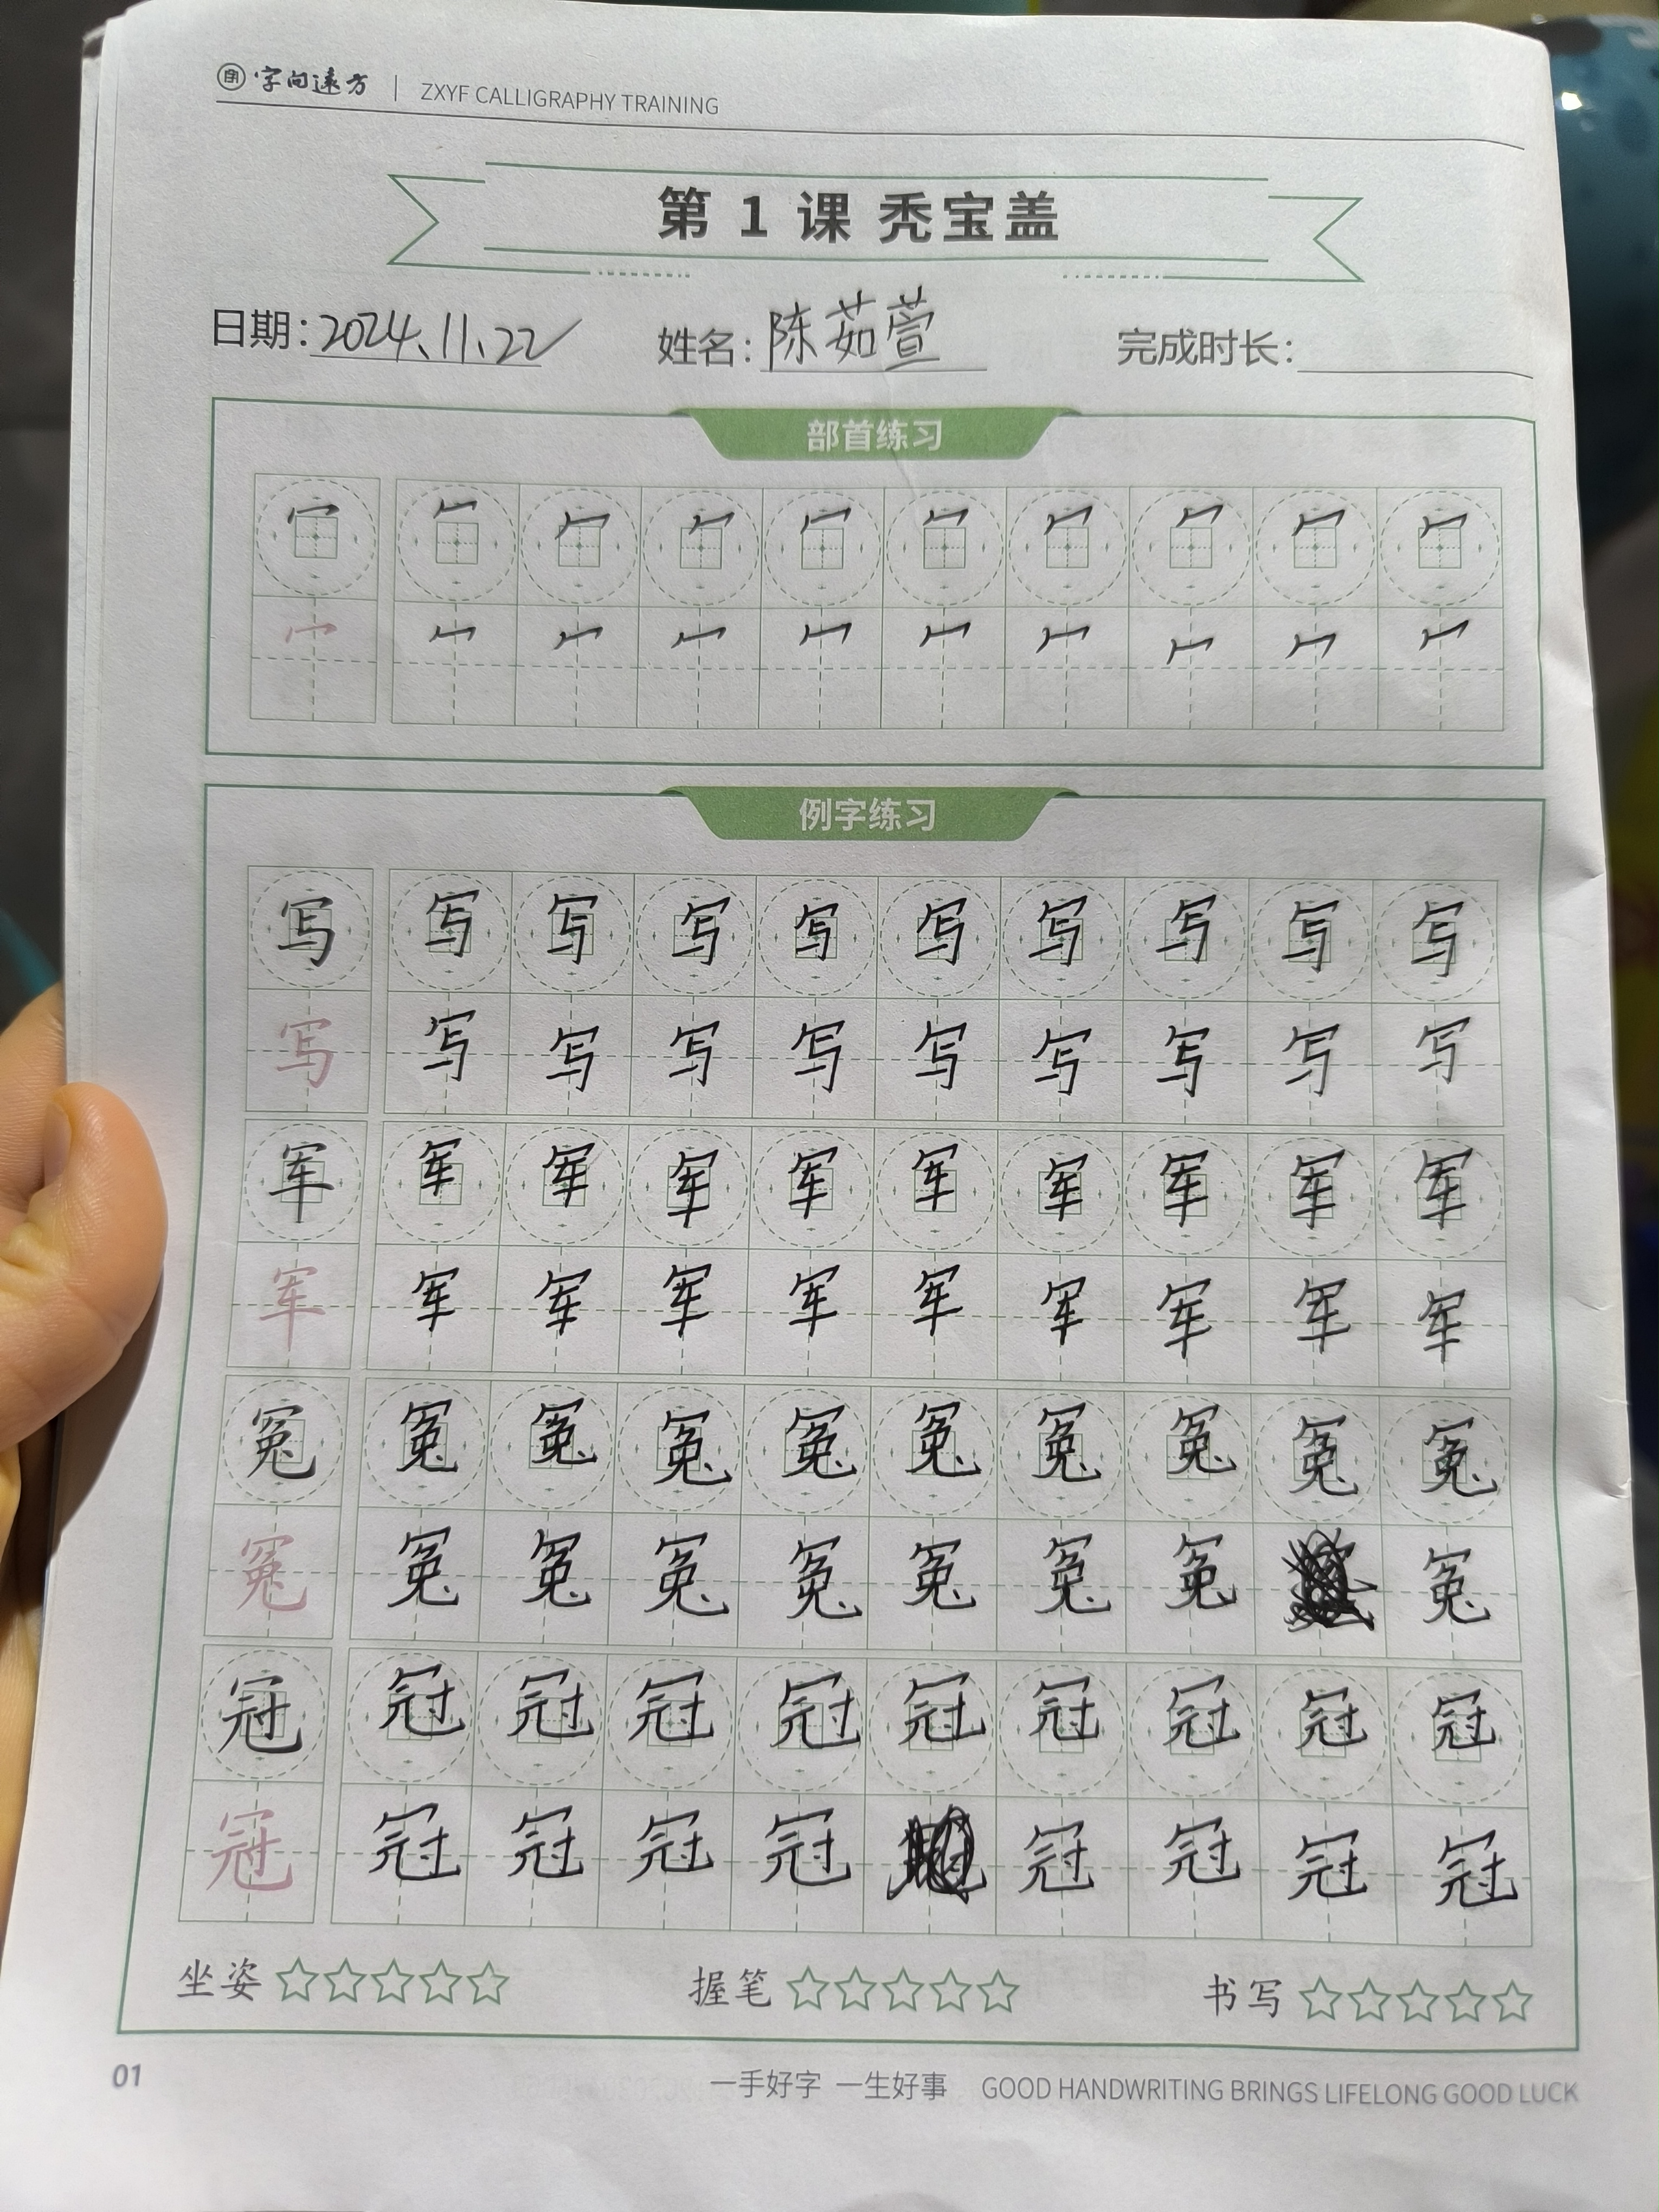 字向远方 | ZXYF CALLIGRAPHY TRAINING
第 1 课 秃宝盖
日期：2024.11.22 姓名：陈茹萱 完成时长：
部首练习
冖 冖 冖 冖 冖 冖 冖 冖 冖 冖
冖 冖 冖 冖 冖 冖 冖 冖 冖 冖
例字练习
写 写 写 写 写 写 写 写 写 写
写 写 写 写 写 写 写 写 写 写
军 军 军 军 军 军 军 军 军 军
军 军 军 军 军 军 军 军 军 军
冤 冤 冤 冤 冤 冤 冤 冤 冤 冤
冤 冤 冤 冤 冤 冤 冤 冤 冤
冠 冠 冠 冠 冠 冠 冠 冠 冠 冠
冠 冠 冠 冠 冠 冠 冠 冠 冠
坐姿 ☆☆☆☆☆ 握笔 ☆☆☆☆☆ 书写 ☆☆☆☆☆
01 一手好字 一生好事 GOOD HANDWRITING BRINGS LIFELONG GOOD LUCK